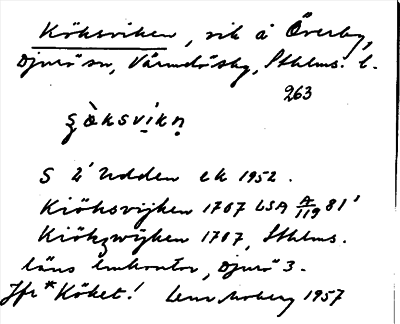 Köksviken, vik å Överby,
Djurö sn, Värmdö sky, Sthlms. l.
263
ʂö̀ksvikn̥
S L' Udden ek 1952.
Kiöksvijken 1707 LSA A/119 81'
Kiökzwijken 1707, Sthlms.
läns lmkontor, Djurö 3.
Jfr *Köket! Lena Moberg 1957